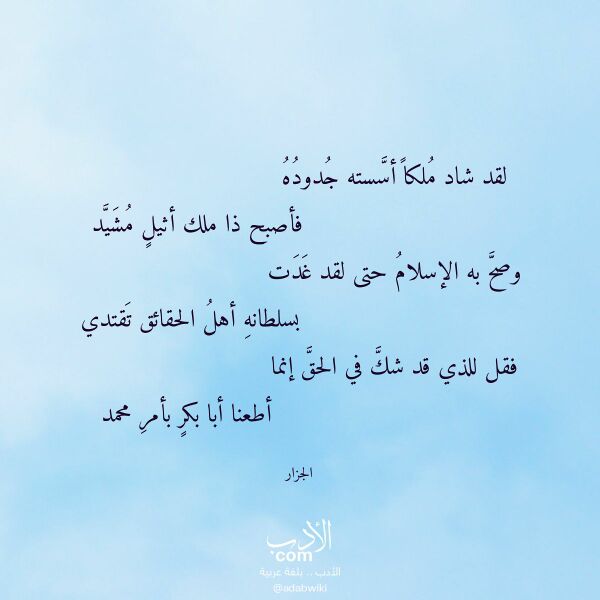 لقد شاد مُلكاً أسَّسته جُدودُهُ
فأصبح ذا ملك أثيلٍ مُشَيَّد
وصحَّ به الإسلامُ حتى لقد غَدَت
بسلطانهِ أهلُ الحقائق تَقتدي
فقل للذي قد شكَّ في الحقَّ إنما
أطعنا أبا بكرٍ بأمرِ محمد
الجزار
الأدب
com
الأدب .. بلغة عربية
@adabwiki